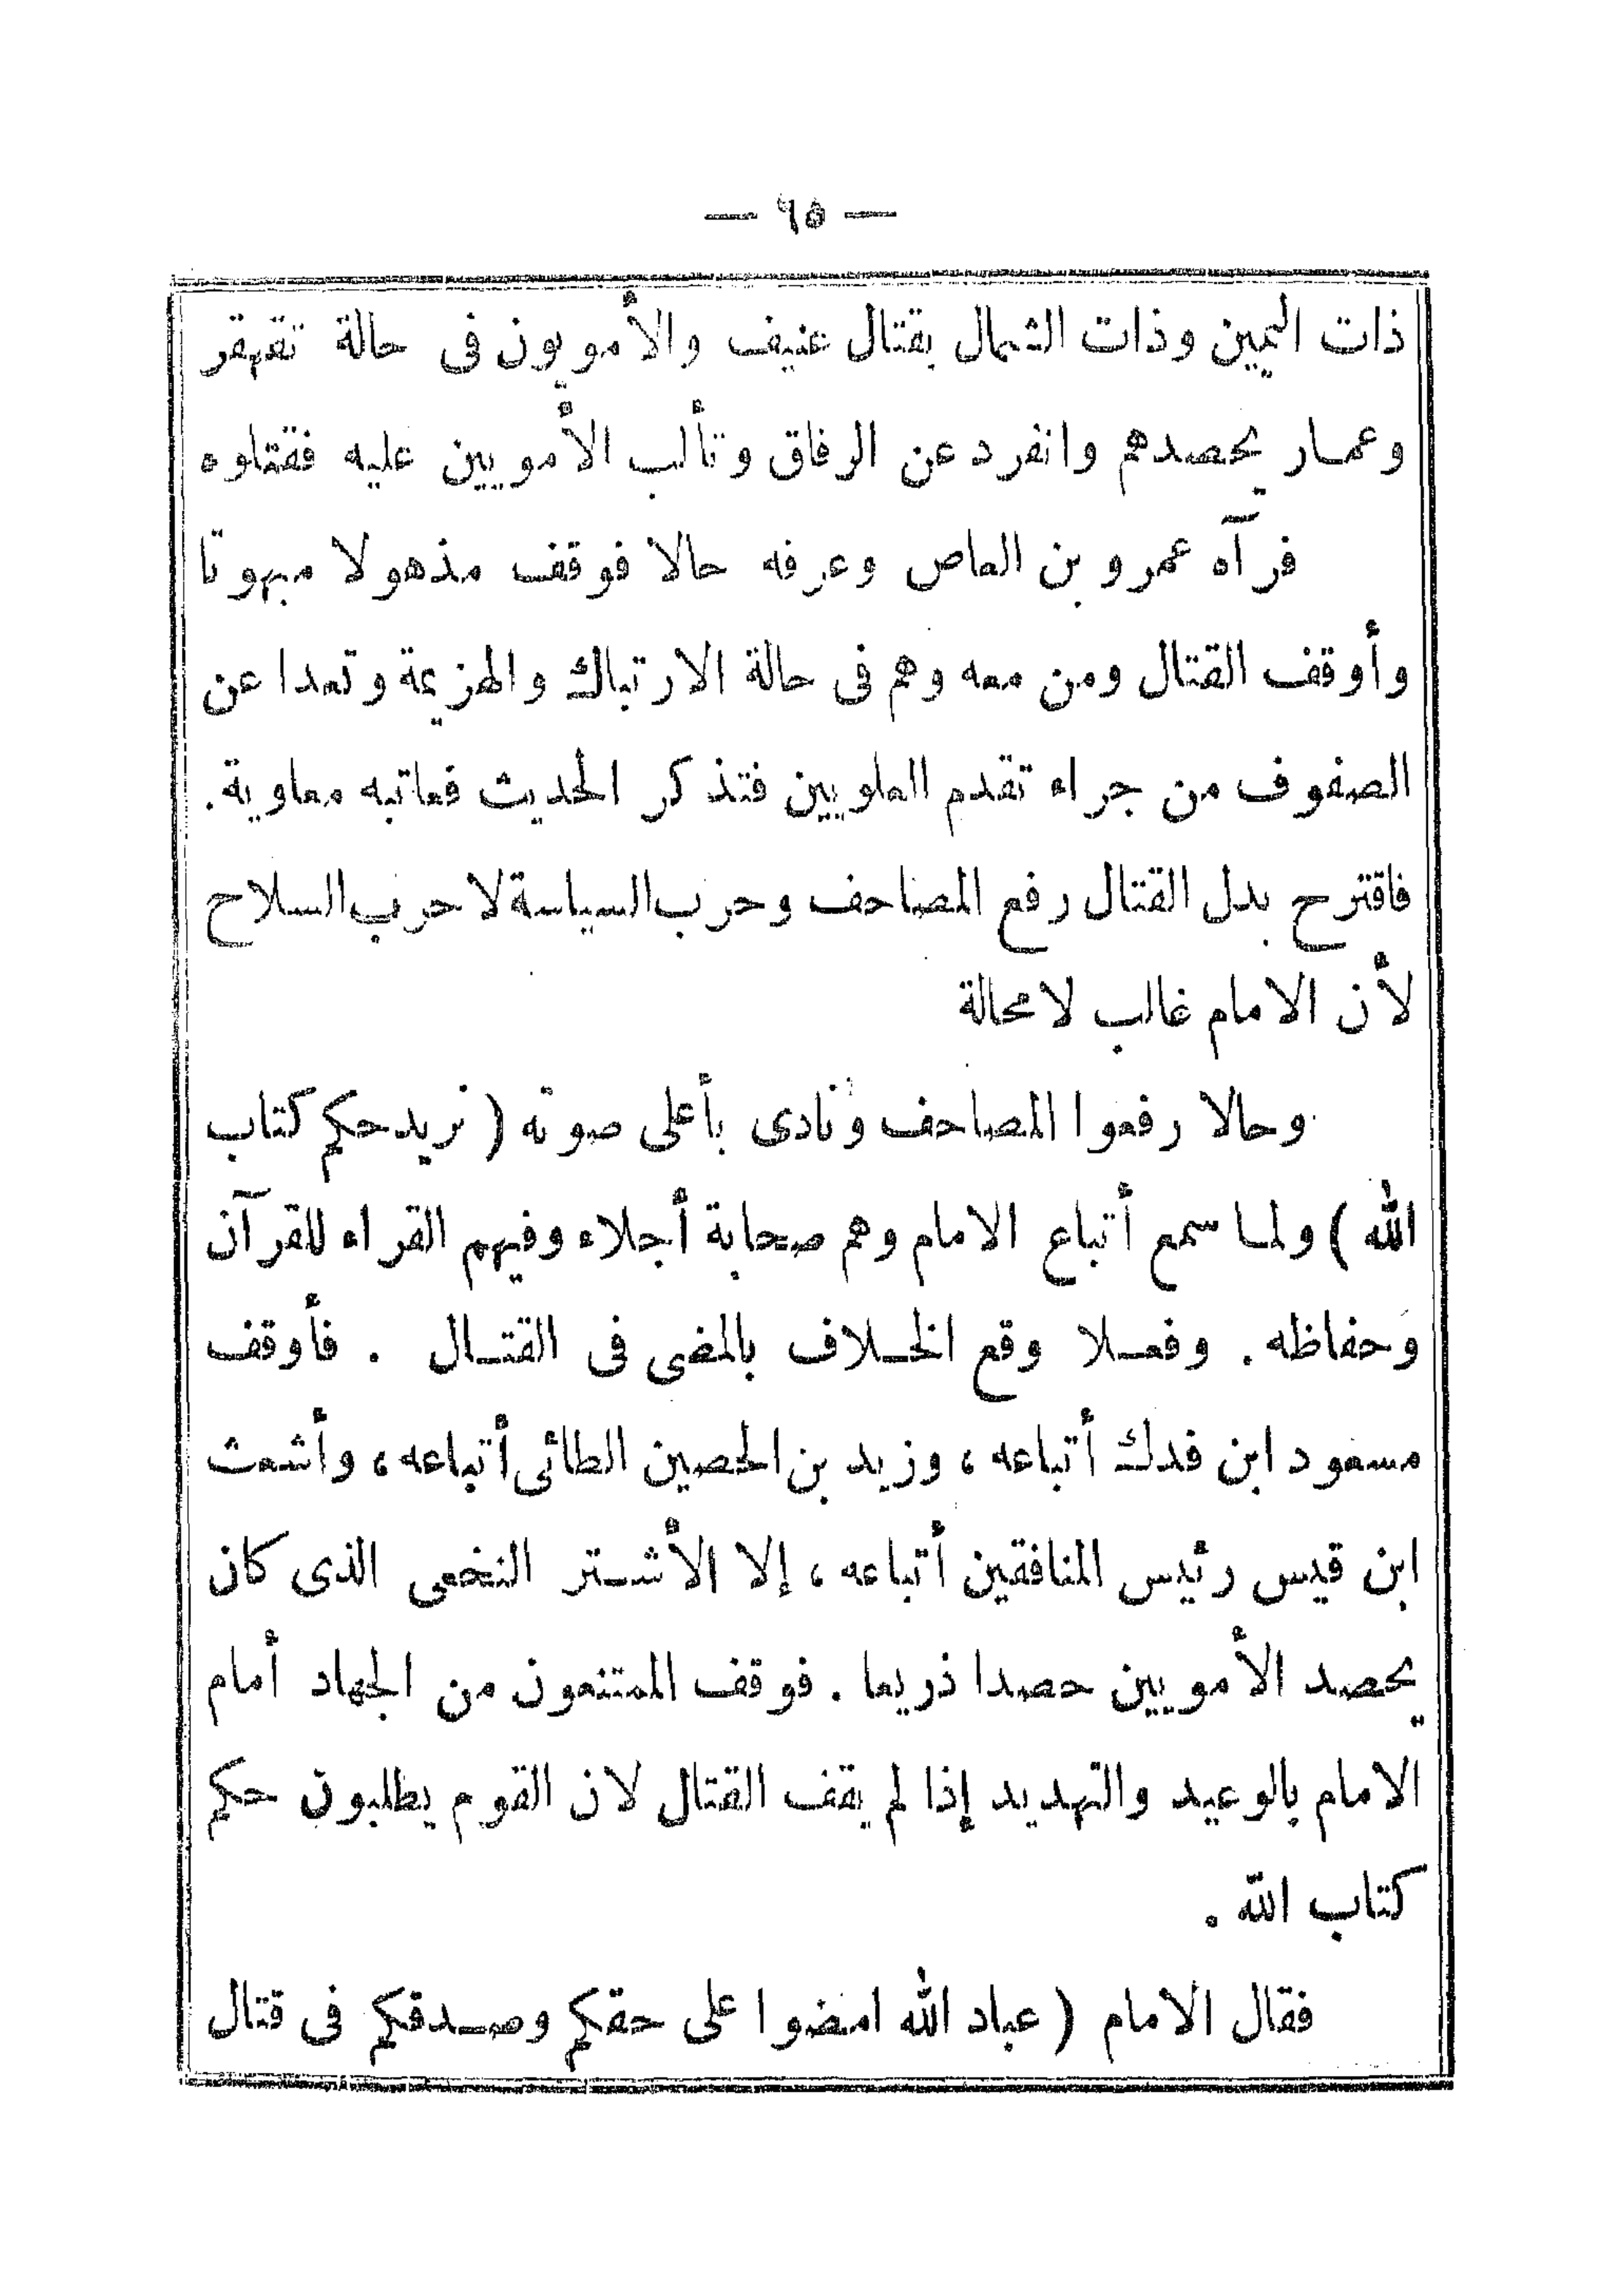 — ٦٥ —
ذات اليمين وذات الشمال بقتال عنيف والأمويون فى حالة تقهقر
وعمار يحصدهم وانفرد عن الرفاق وتألب الأمويين عليه فقتلوه
فرآه عمرو بن العاص وعرفه حالا فوقف مذهولا مبهوتا
وأوقف القتال ومن معه وهم فى حالة الارتباك والهزيمة وتعدا عن
الصفوف من جراء تقدم العلويين فتذكر الحديث فعاتبه معاوية .
فاقترح بدل القتال رفع المصاحف وحرب السياسة لا حرب السلاح
لأن الامام غالب لا محالة
وحالا رفعوا المصاحف ونادى بأعلى صوته ( نريد حكم كتاب
الله ) ولما سمع أتباع الامام وهم صحابة أجلاء وفيهم القراء للقرآن
وحفاظه . وفعلا وقع الخلاف بالمضى فى القتال . فأوقف
مسعود ابن فدك أتباعه ، وزيد بن الحصين الطائى أتباعه ، وأشعث
ابن قيس رئيس المنافقين أتباعه ، إلا الأشتر النخعى الذى كان
يحصد الأمويين حصدا ذريعا . فوقف الممتنعون من الجهاد أمام
الامام بالوعيد والتهديد إذا لم يقف القتال لان القوم يطلبون حكم
كتاب الله .
فقال الامام ( عباد الله امضوا على حقكم وصدقكم فى قتال